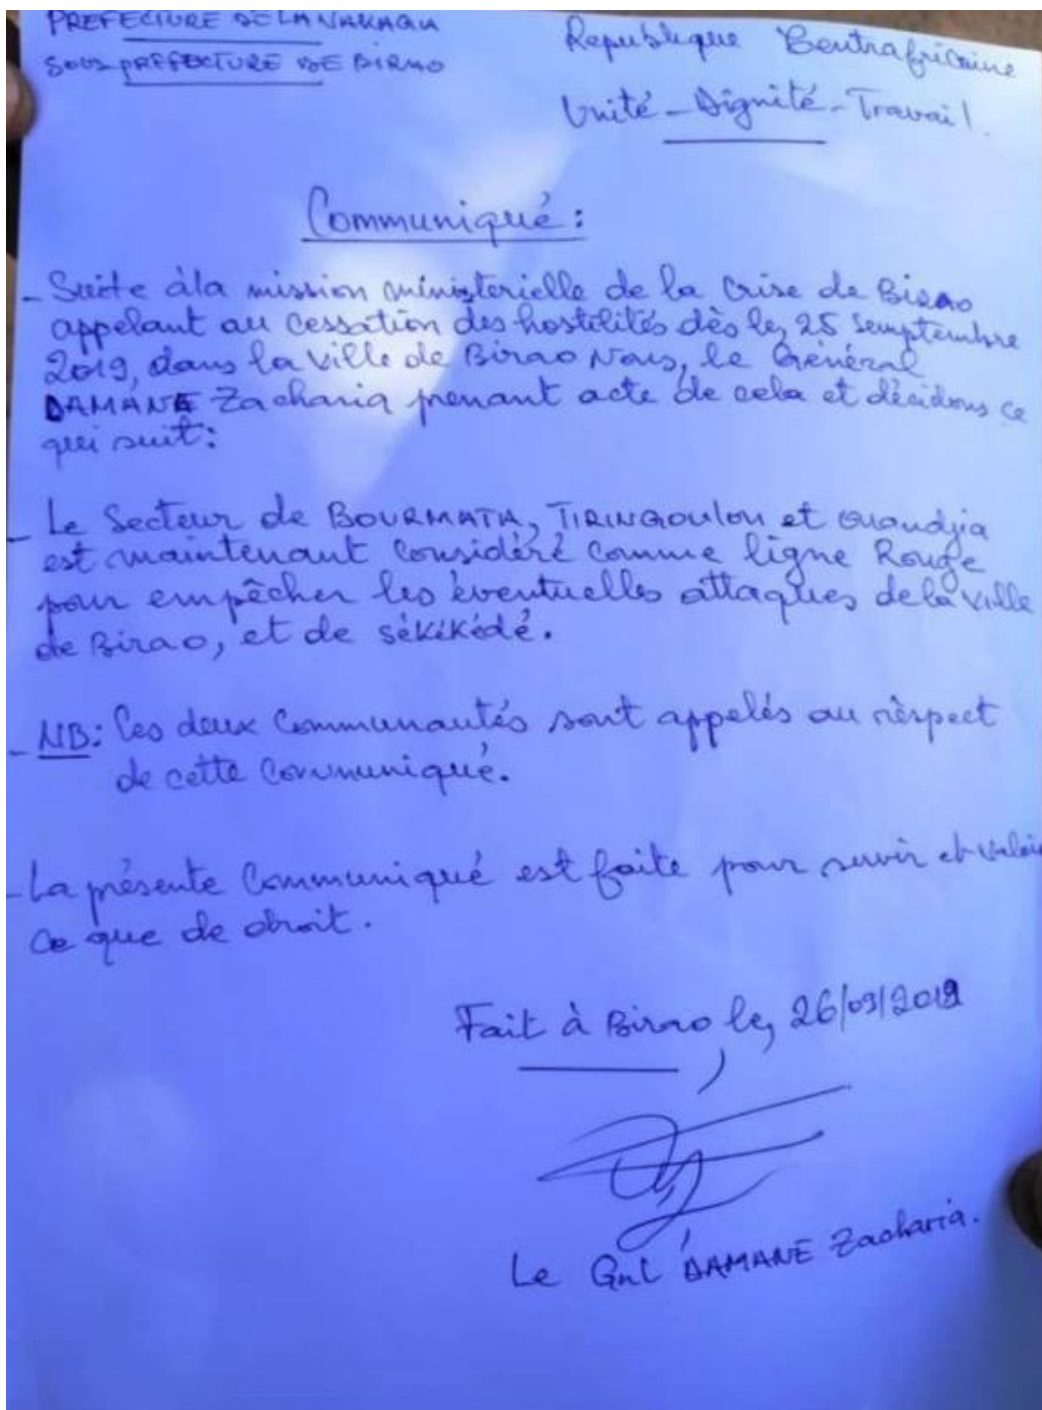 PREFECTURE DE LA VAKAGA
SOUS PREFECTURE DE BIRAO
Republique Centrafricaine
Unité - Dignité - Travail.
Communiqué :
- Suite à la mission ministerielle de la Crise de Birao
appelant au Cessation des hostilités dès le, 25 Semptembre
2019, dans la ville de Birao Nous, le Général
DAMANE Zacharia prenant acte de cela et décidons ce
qui suit :
- Le Secteur de BOURMATA, TIRINGOULOU et Ouandjia
est maintenant Considéré Comme ligne Rouge
pour empêcher les éventuelles attaques de la ville
de Birao, et de sékikédé.
- NB : les deux Communautés sont appelés au rèspect
de cette Communiqué.
- La présente Communiqué est faite pour servir et valoir
ce que de droit.
Fait à Birao le, 26/09/2019
Le Gnl DAMANE Zacharia.